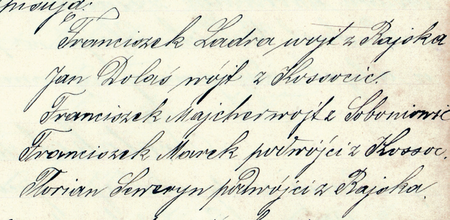 Franciszek Ladra wojt z Rajska
Jan Dolaś wójt z Kossocic.
Franciszek Majcher wojt z Soboniowic
Franciszek Marek podwójci z Kossoc.
Florian Seweryn podwójci z Rajska.